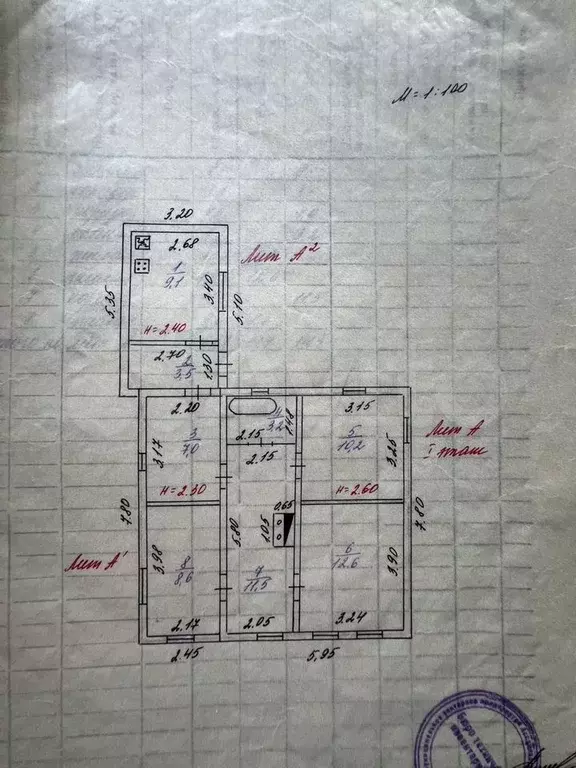 М = 1 : 100
3.20
2.68
Лит А²
1
9,1
3.40
5.35
5.10
H = 2.40
2.70
2
3,5
1.30
2.20
4
3,2
1.48
3.15
3.17
3
7,0
2.15
5
10,2
3.25
Лит А
I этаж
2.15
H = 2.30
H = 2.60
0,65
7.80
7.80
5.80
1.05
3.98
6
12,6
3.90
Лит А'
8
8,6
7
11,5
2.17
2.05
3.24
2.45
5,95